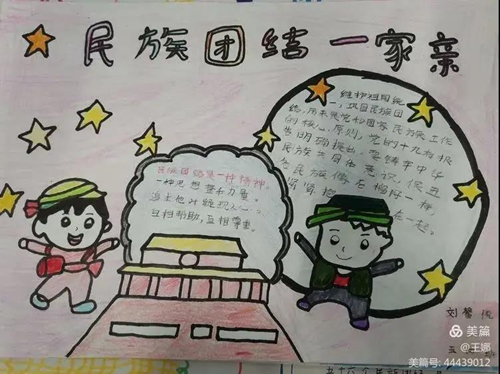 民族团结一家亲
维护祖国统
一，巩固民族团
结，历来是党和国家民族工作
的核心原则，党的十九大报
告明确提出，要铸牢中华
民族共同体意识，像五
各民族像石榴籽一样
紧紧抱
在一起。
民族团结是一种精神，
一种思想和力量。
互相帮助，互相尊重。
刘
美篇
@王娜
美篇号: 44439012